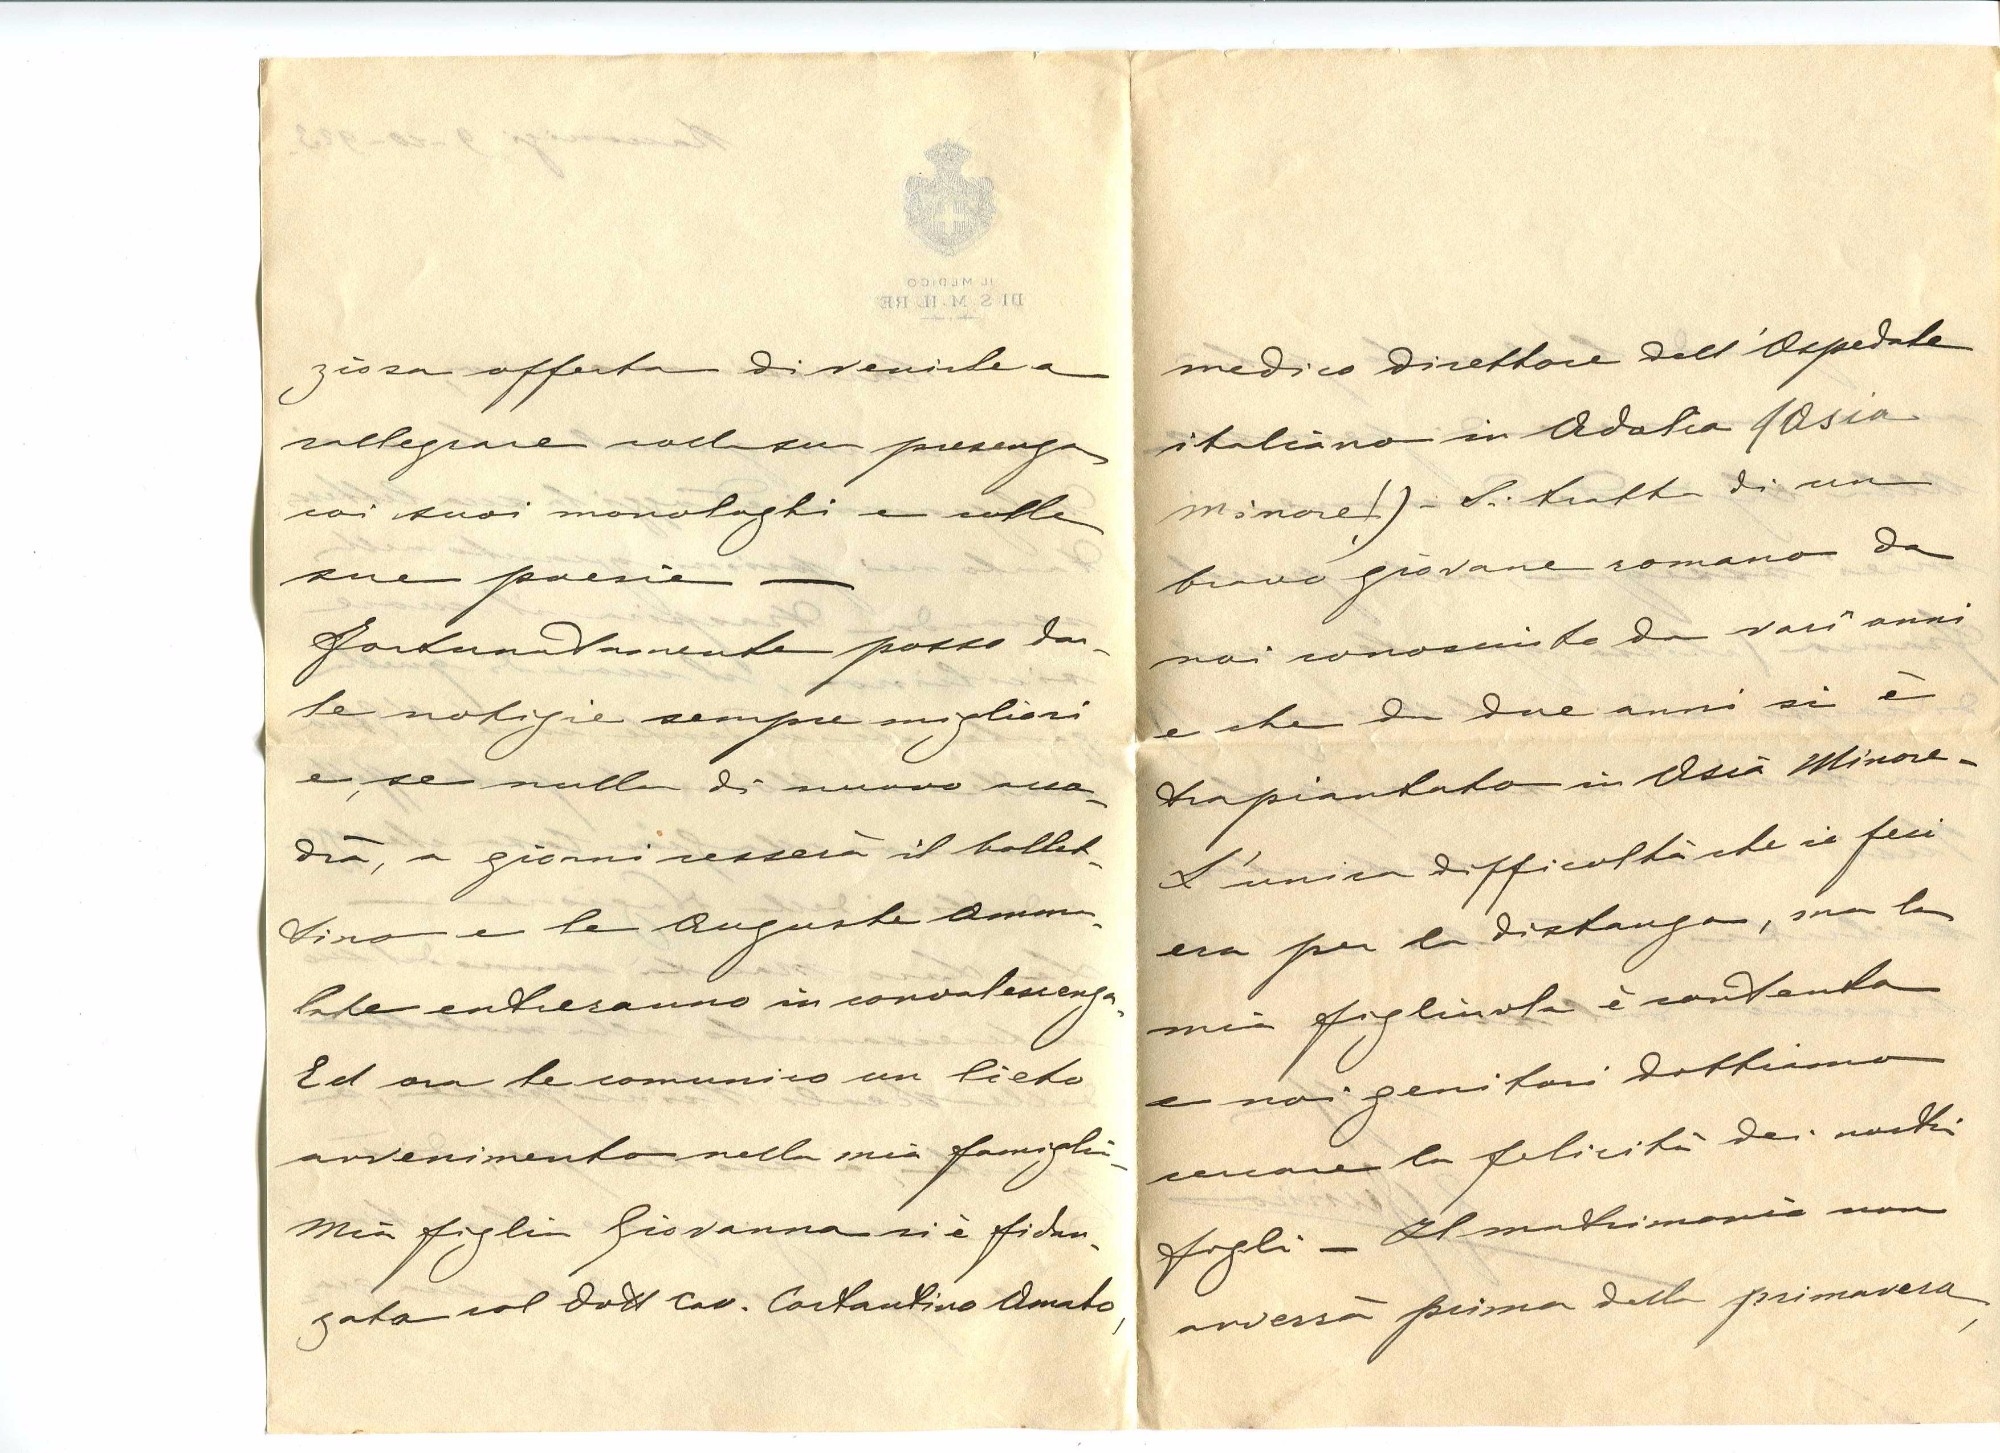 ziosa offerta di venirle a
rallegrare colla sua presenza
coi suoi monologhi e colle
sue poesie —
Fortunatamente posso dar-
le notizie sempre migliori
e, se nulla di nuovo acca-
drà, a giorni cesserà il bollet-
tino e le Auguste Amma-
late entreranno in convalescenza.
Ed ora le comunico un lieto
avvenimento nella mia famiglia-
Mia figlia Giovanna si è fidan-
zata col dott Cav. Costantino Amato,
medico direttore dell'Ospedale
italiano in Adalia (Asia
minore!) - Si tratta di un
bravo giovane romano da
noi conosciuto da vari anni
e che da due anni si è
trapiantato in Asia Minore-
L'unica difficoltà che io feci
era per la distanza, ma la
mia figliuola è contenta
e noi genitori dobbiamo
cercare la felicità dei nostri
figli — Il matrimonio non
avverrà prima della primavera,
IL MEDICO
DI S. M. IL RE
Racconigi 9-10-923-